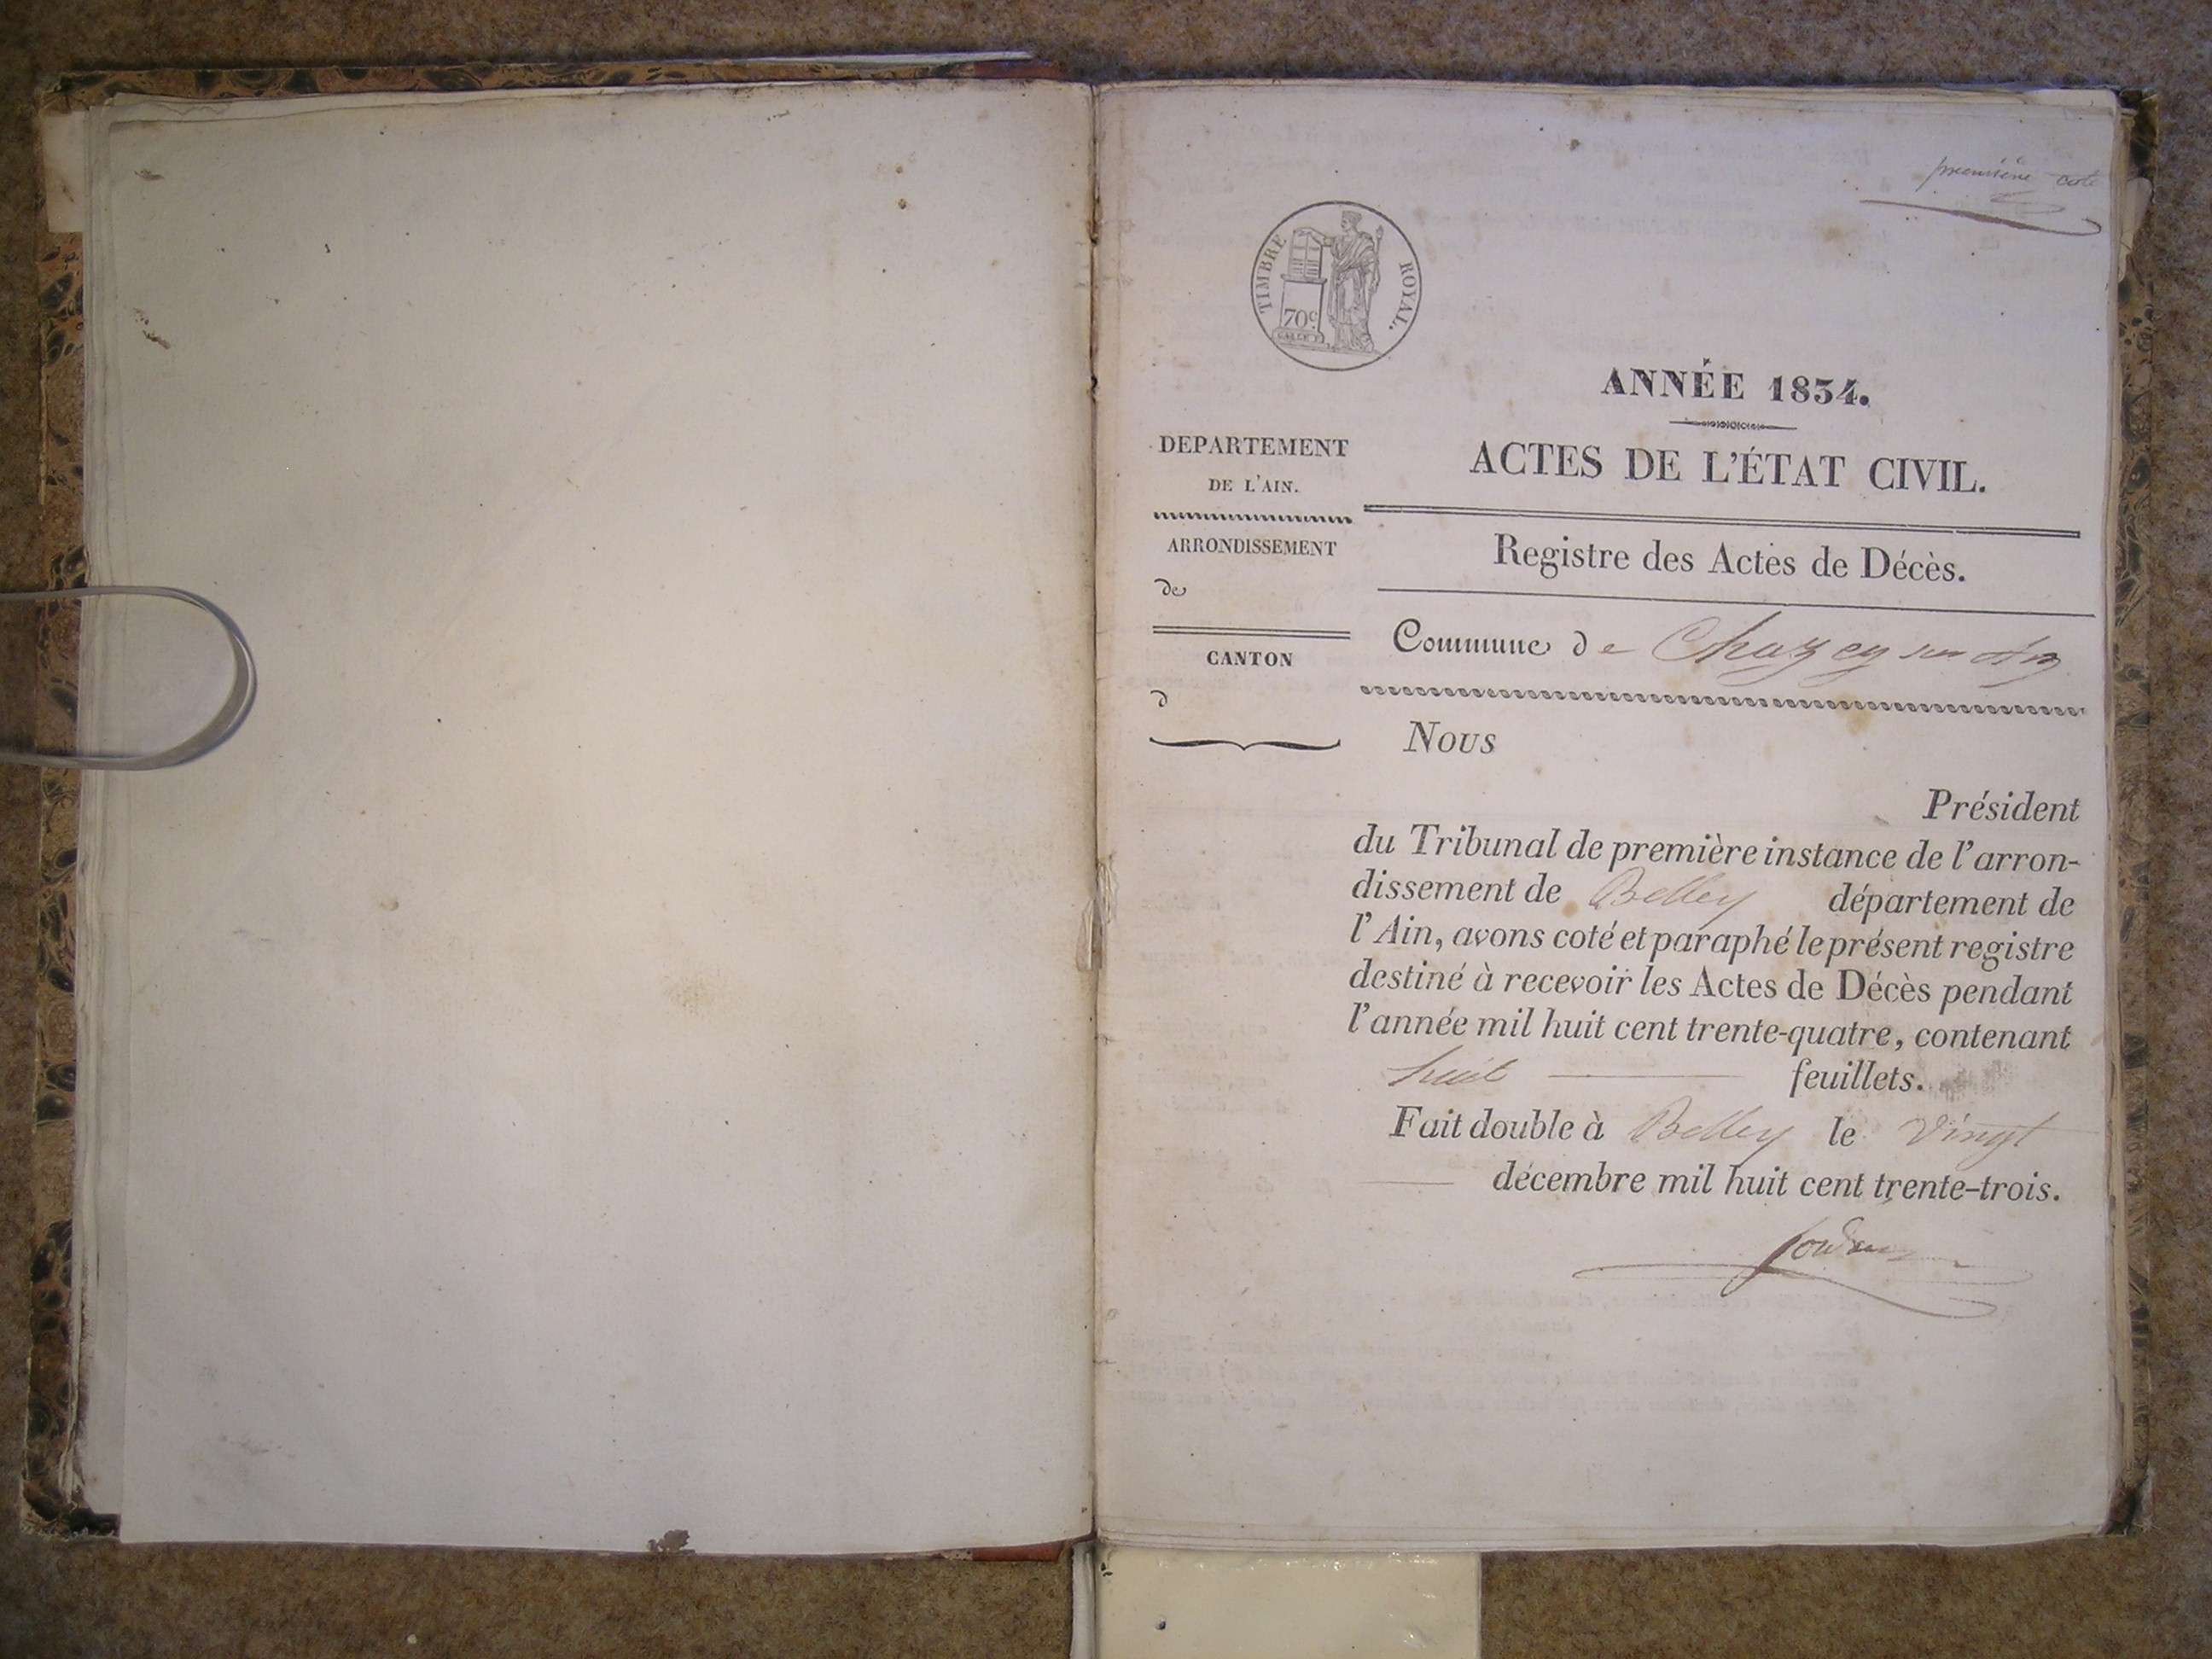 première cote
TIMBRE ROYAL.
70c
ANNÉE 1834.
DEPARTEMENT
DE L'AIN.
ACTES DE L'ÉTAT CIVIL.
ARRONDISSEMENT
de
Registre des Actes de Décès.
CANTON
d
Commune de Chazey sur Ain
Nous
Président
du Tribunal de première instance de l'arron-
dissement de Belley département de
l'Ain, avons coté et paraphé le présent registre
destiné à recevoir les Actes de Décès pendant
l'année mil huit cent trente-quatre, contenant
huit feuillets.
Fait double à Belley le vingt
décembre mil huit cent trente-trois.